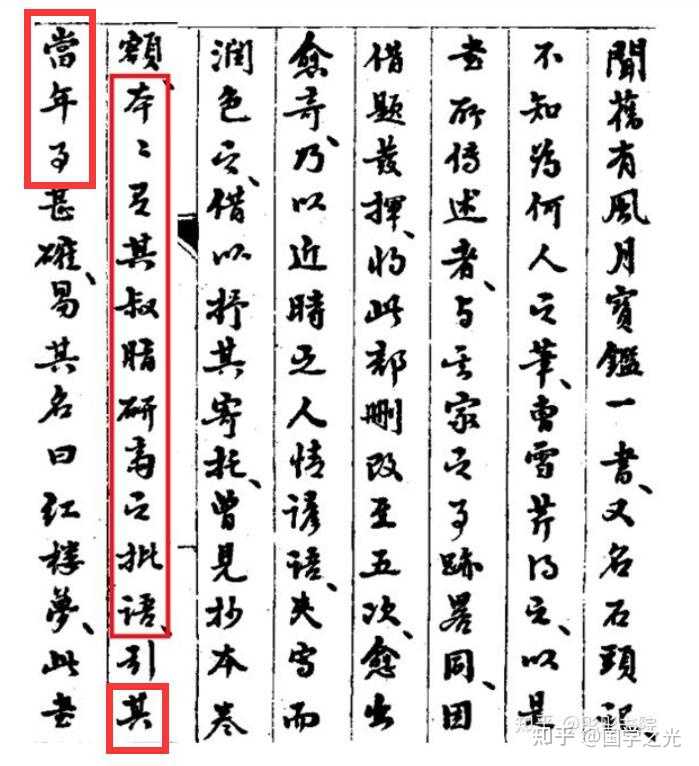 聞舊有風月寶鑑一書、又名石頭記
不知為何人之筆、曹雪芹得之、以是
書所傳述者、与其家之事跡畧同、因
借題發揮、將此部刪改至五次、愈出
愈奇、乃以近時之人情諺語、夾寫而
潤色之、借以抒其寄托、曾見抄本卷
額、本〻有其叔脂研斋之批語、引其
當年事甚確、易其名曰红樓夢、此書
知乎 @国学之光